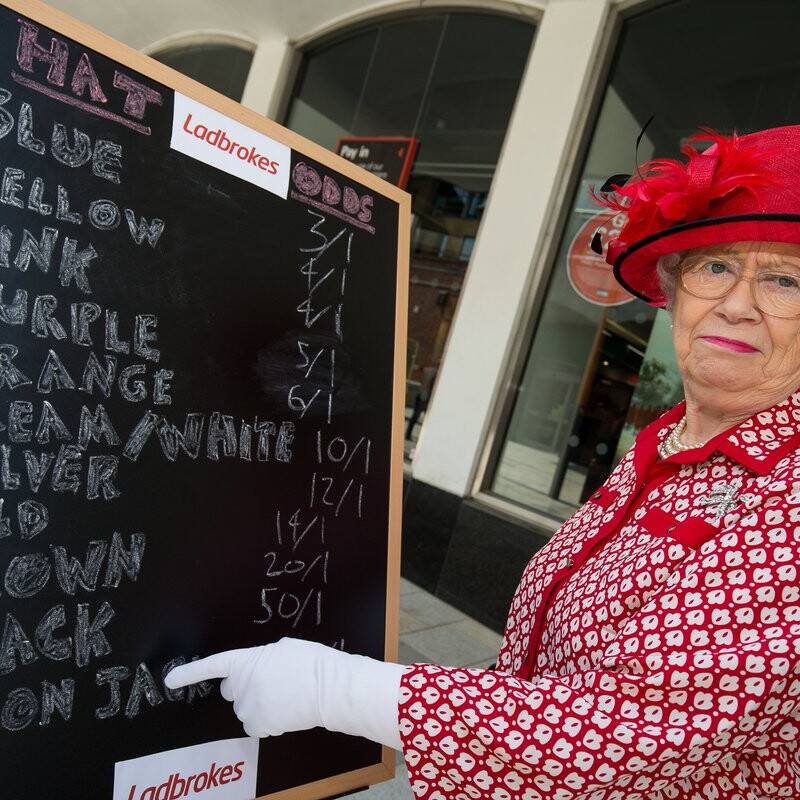 HAT Ladbrokes ODDS
BLUE 3/1
YELLOW 4/1
INK 4/1
URPLE 5/1
RANGE 6/1
REAM/WHITE 10/1
ILVER 12/1
LD 14/1
OWN 20/1
ACK 50/1
ON JACK
Ladbrokes
Pay in